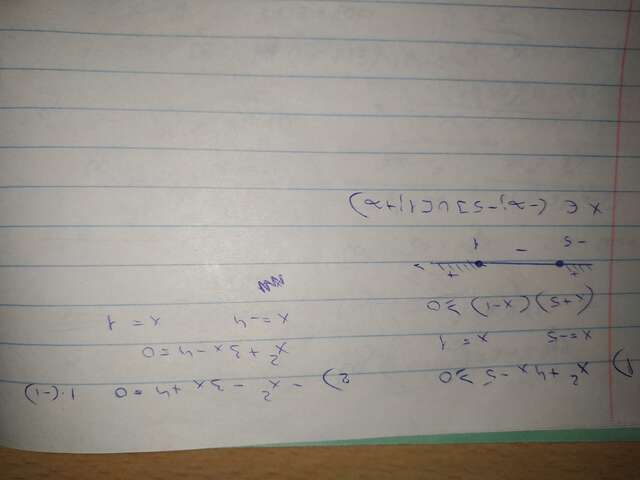 1) x² + 4x - 5 ≥ 0
x = -5 x = 1
(x+5)(x-1) ≥ 0
+ - +
-5 1
x ∈ (-∞; -5] ∪ [1; +∞)
2) - x² - 3x + 4 = 0 | · (-1)
x² + 3x - 4 = 0
x = -4 x = 1